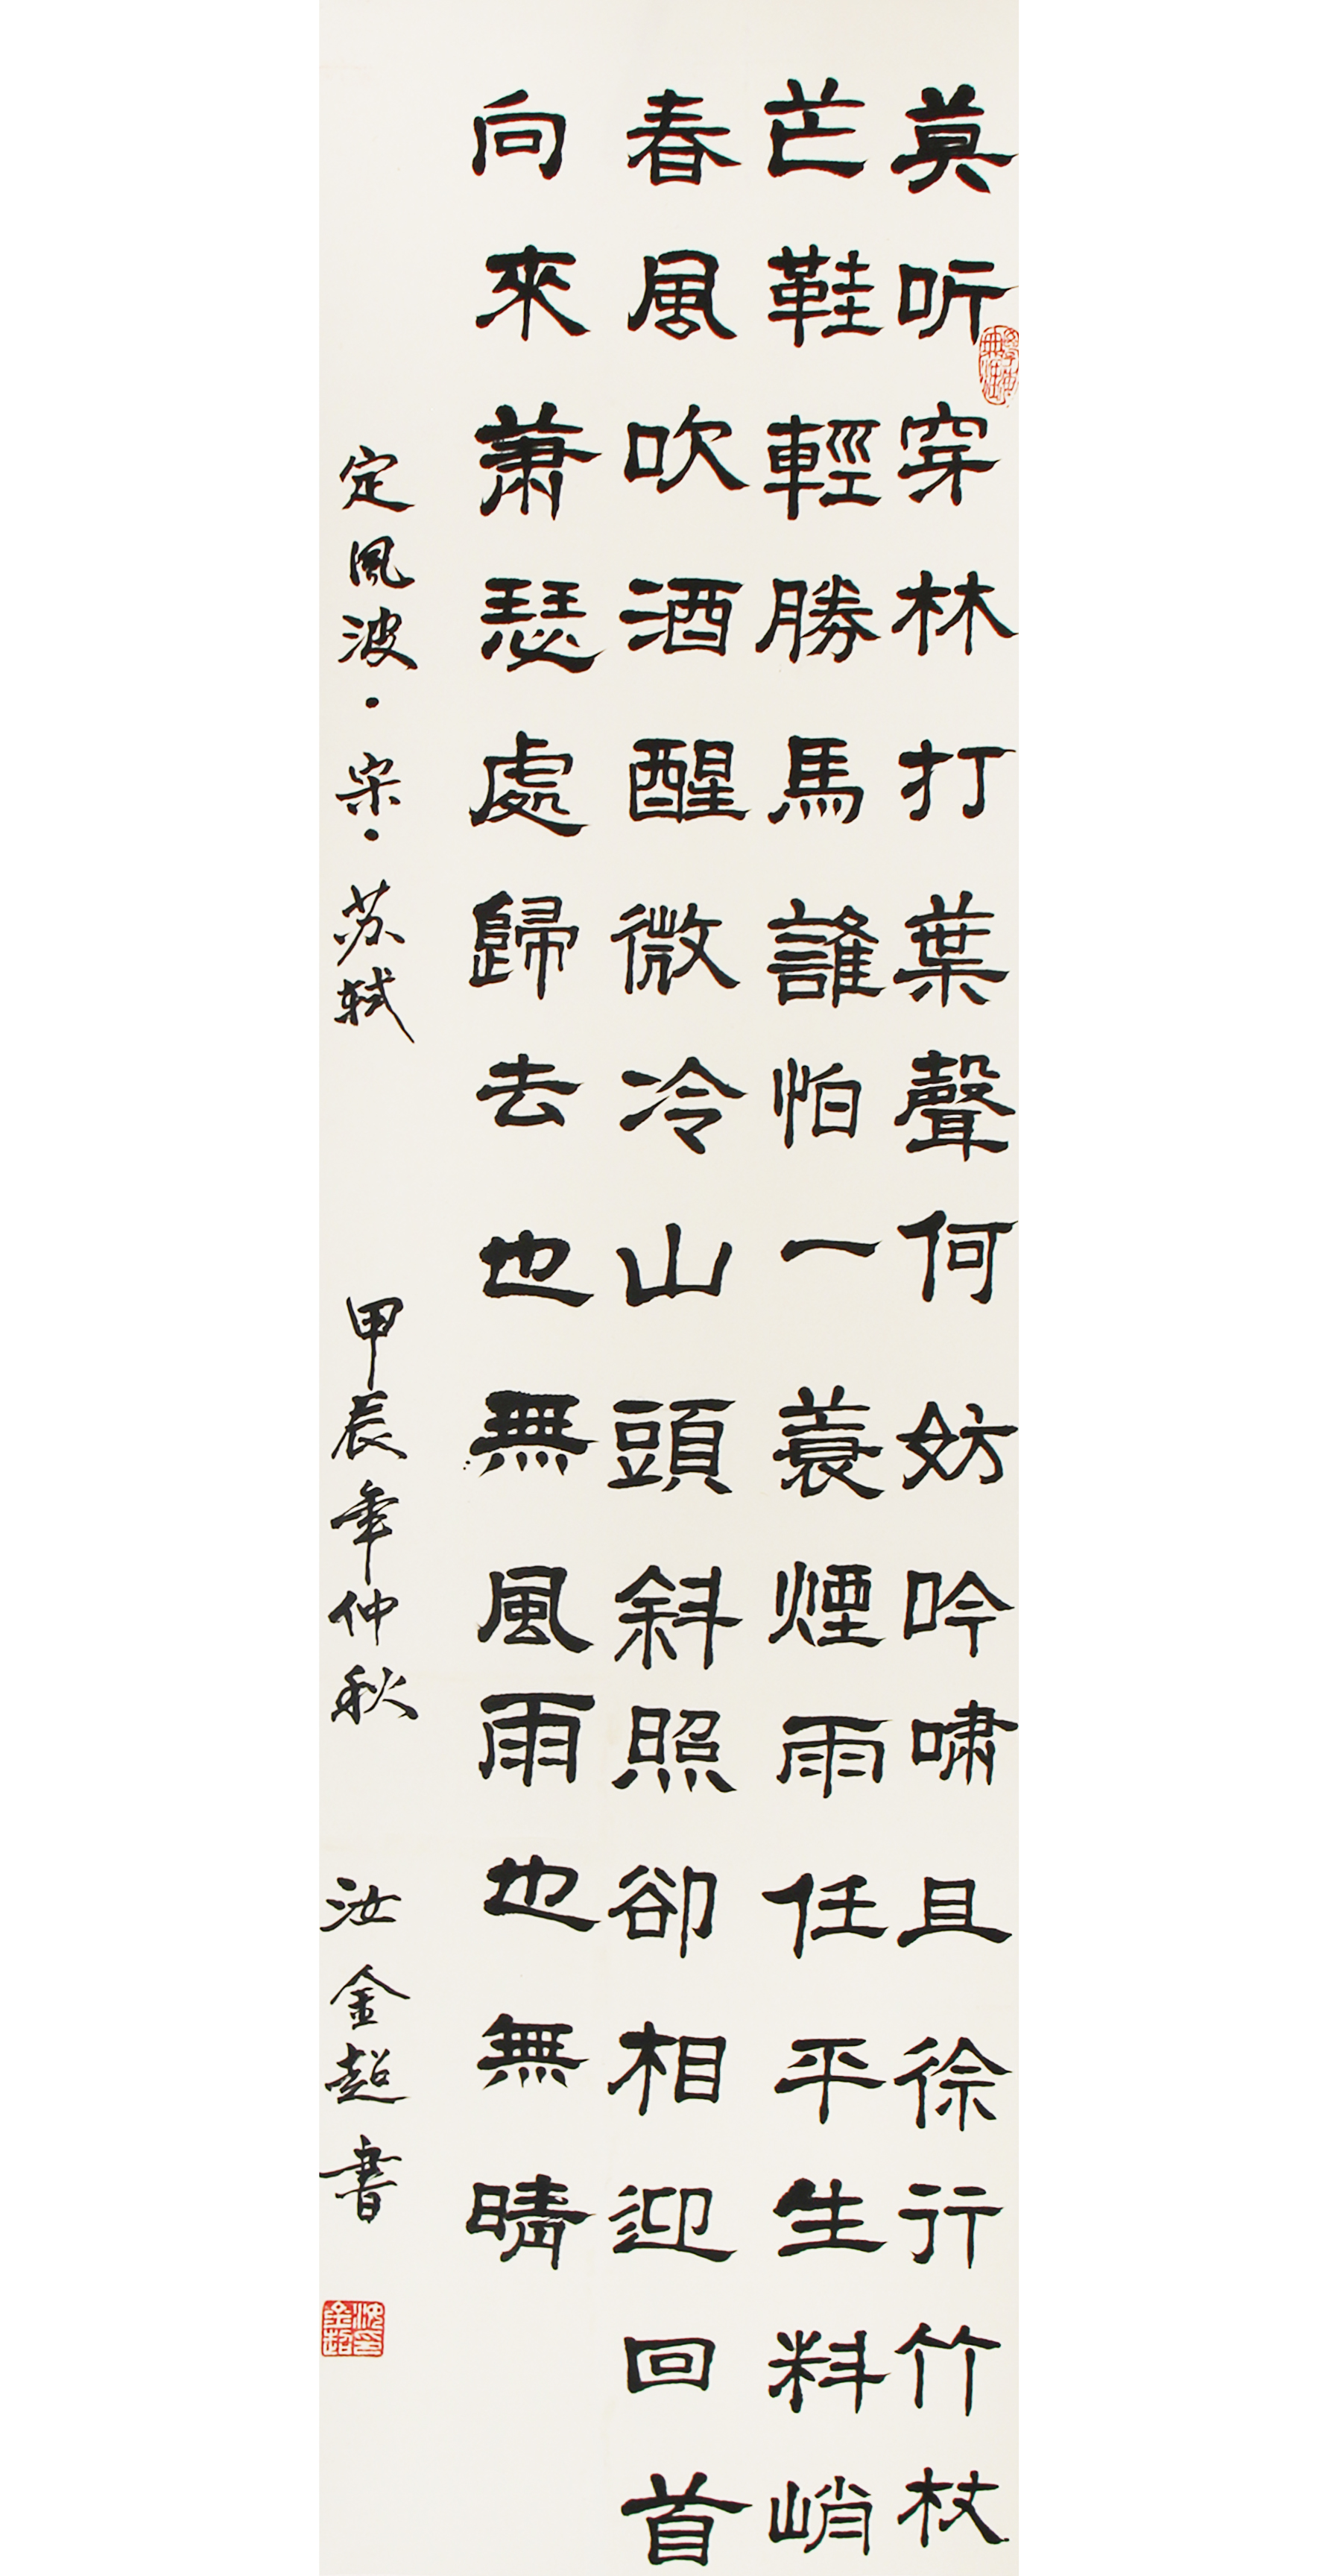 莫听穿林打葉聲何妨吟啸且徐行竹杖
芒鞋輕勝馬誰怕一蓑煙雨任平生料峭
春風吹酒醒微冷山頭斜照卻相迎回首
向來萧瑟處歸去也無風雨也無晴
定風波·宋·苏軾
甲辰年仲秋
汝金超書